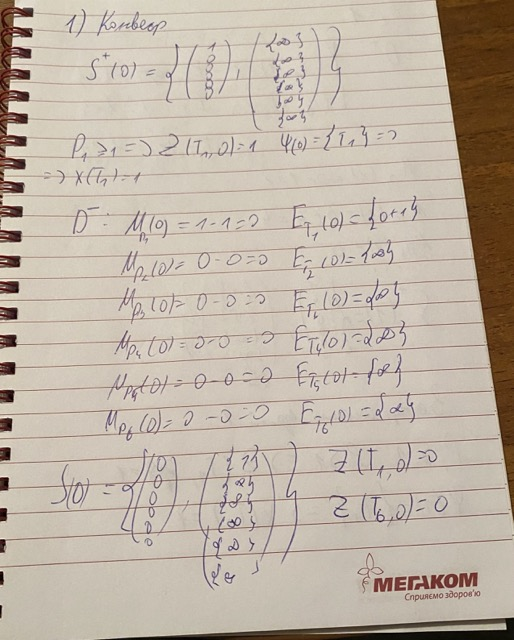 1) Конвеєр
S⁺(0) = { ( 1 0 0 0 0 0 ), ( {∞} {∞} {∞} {∞} {∞} {∞} ) }
P₁ ≥ 1 => Z(T₁,0) = 1 Ψ(0) = {T₁} =>
=> X(T₁) = 1
D⁻: M_P₁(0) = 1-1=0 E_T₁(0) = {0+1}
M_P₂(0) = 0-0=0 E_T₂(0) = {∞}
M_P₃(0) = 0-0=0 E_T₃(0) = {∞}
M_P₄(0) = 0-0=0 E_T₄(0) = {∞}
M_P₄(0) = 0-0=0 E_T₅(0) = {∞}
M_P₆(0) = 0-0=0 E_T₆(0) = {∞}
S(0) = { ( 0 0 0 0 0 0 ), ( {1} {∞} {∞} {∞} {∞} {∞} ) } Z(T₁,0)=0
Z(T₆,0)=0
МЕГАКОМ
Сприяємо здоров'ю